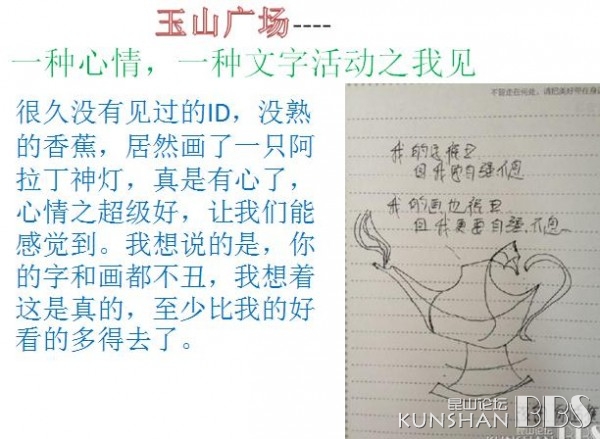 玉山广场----
一种心情，一种文字活动之我见
很久没有见过的ID，没熟
的香蕉，居然画了一只阿
拉丁神灯，真是有心了，
心情之超级好，让我们能
感觉到。我想说的是，你
的字和画都不丑，我想着
这是真的，至少比我的好
看的多得去了。
不管走在何处，请把美好带在身边
我的字很丑
但我的自强不息
我的画也很丑
但我更要自强不息
昆山论坛
KUNSHAN BBS